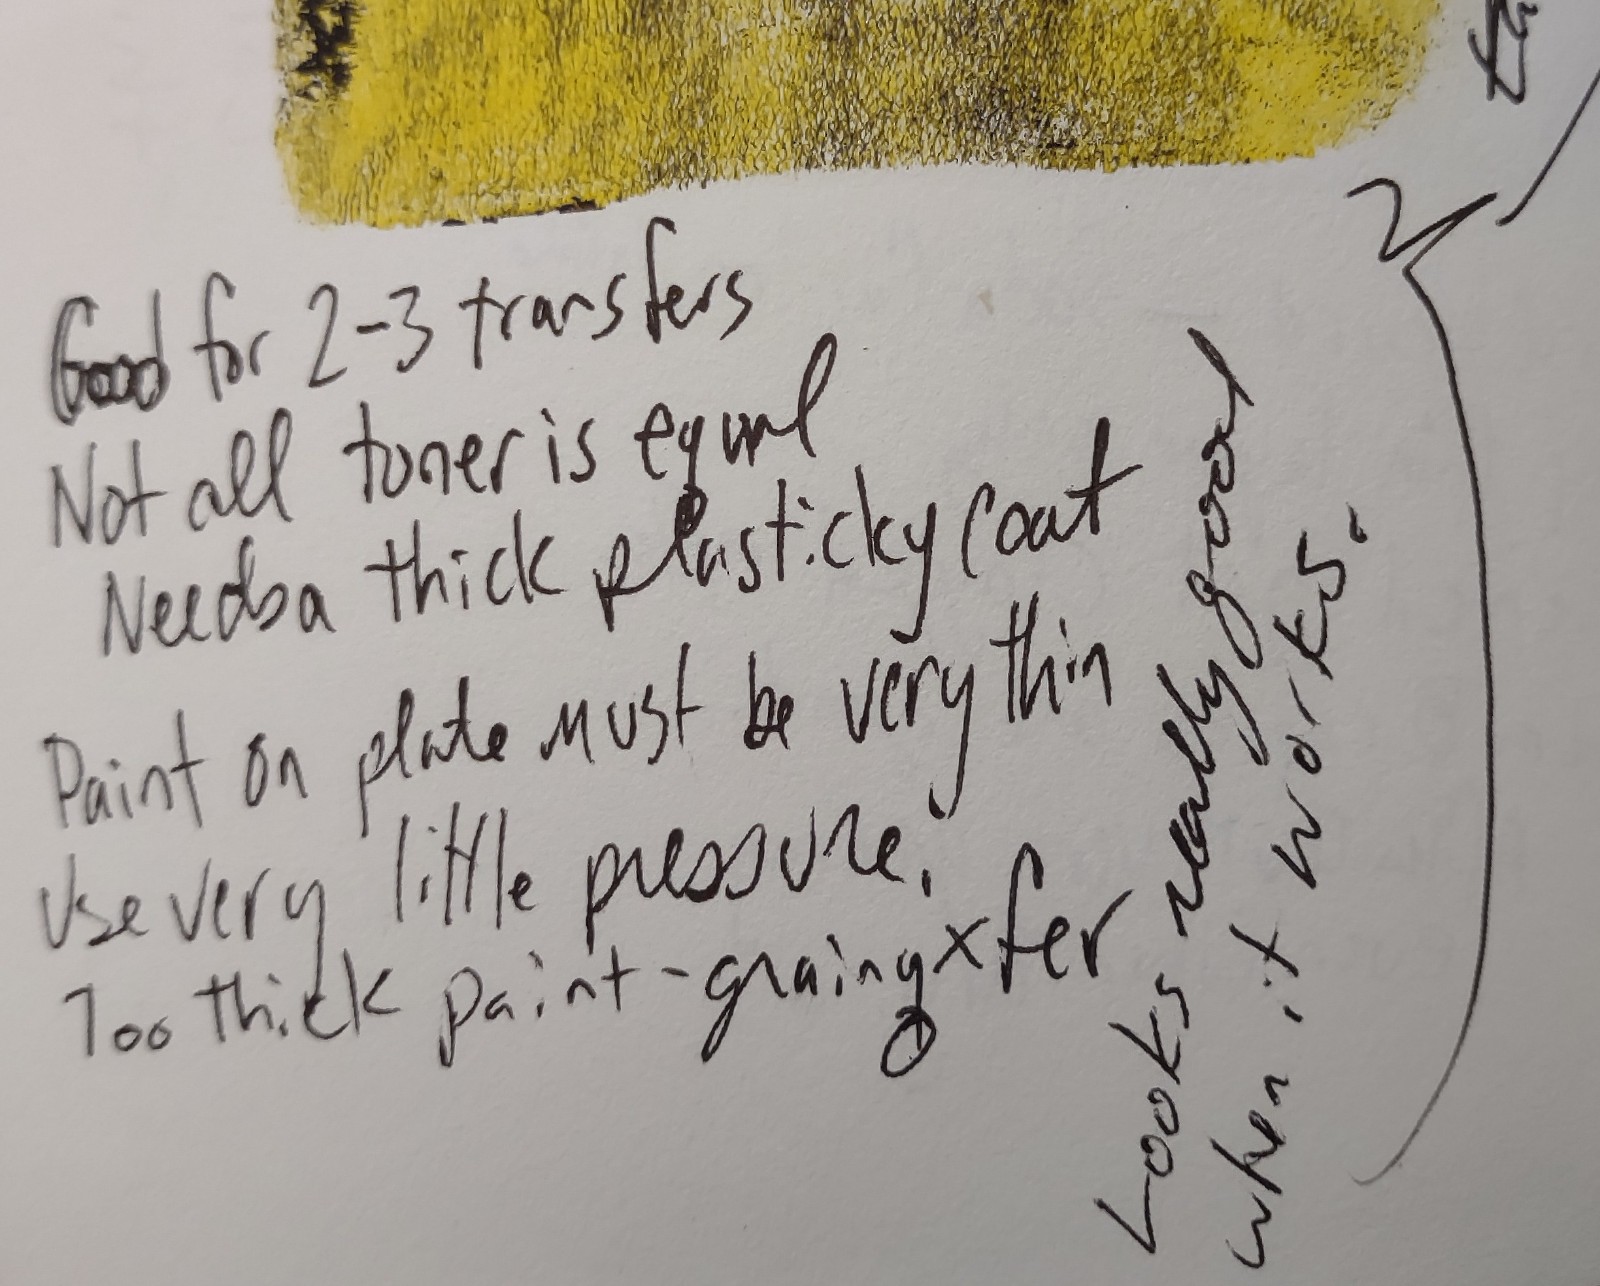 Good for 2-3 transfers
Not all toner is equal
Needs a thick plasticky coat
Paint on plate must be very thin
Use very little pressure!
Too thick paint - grainy xfer
Looks really good
when it works.